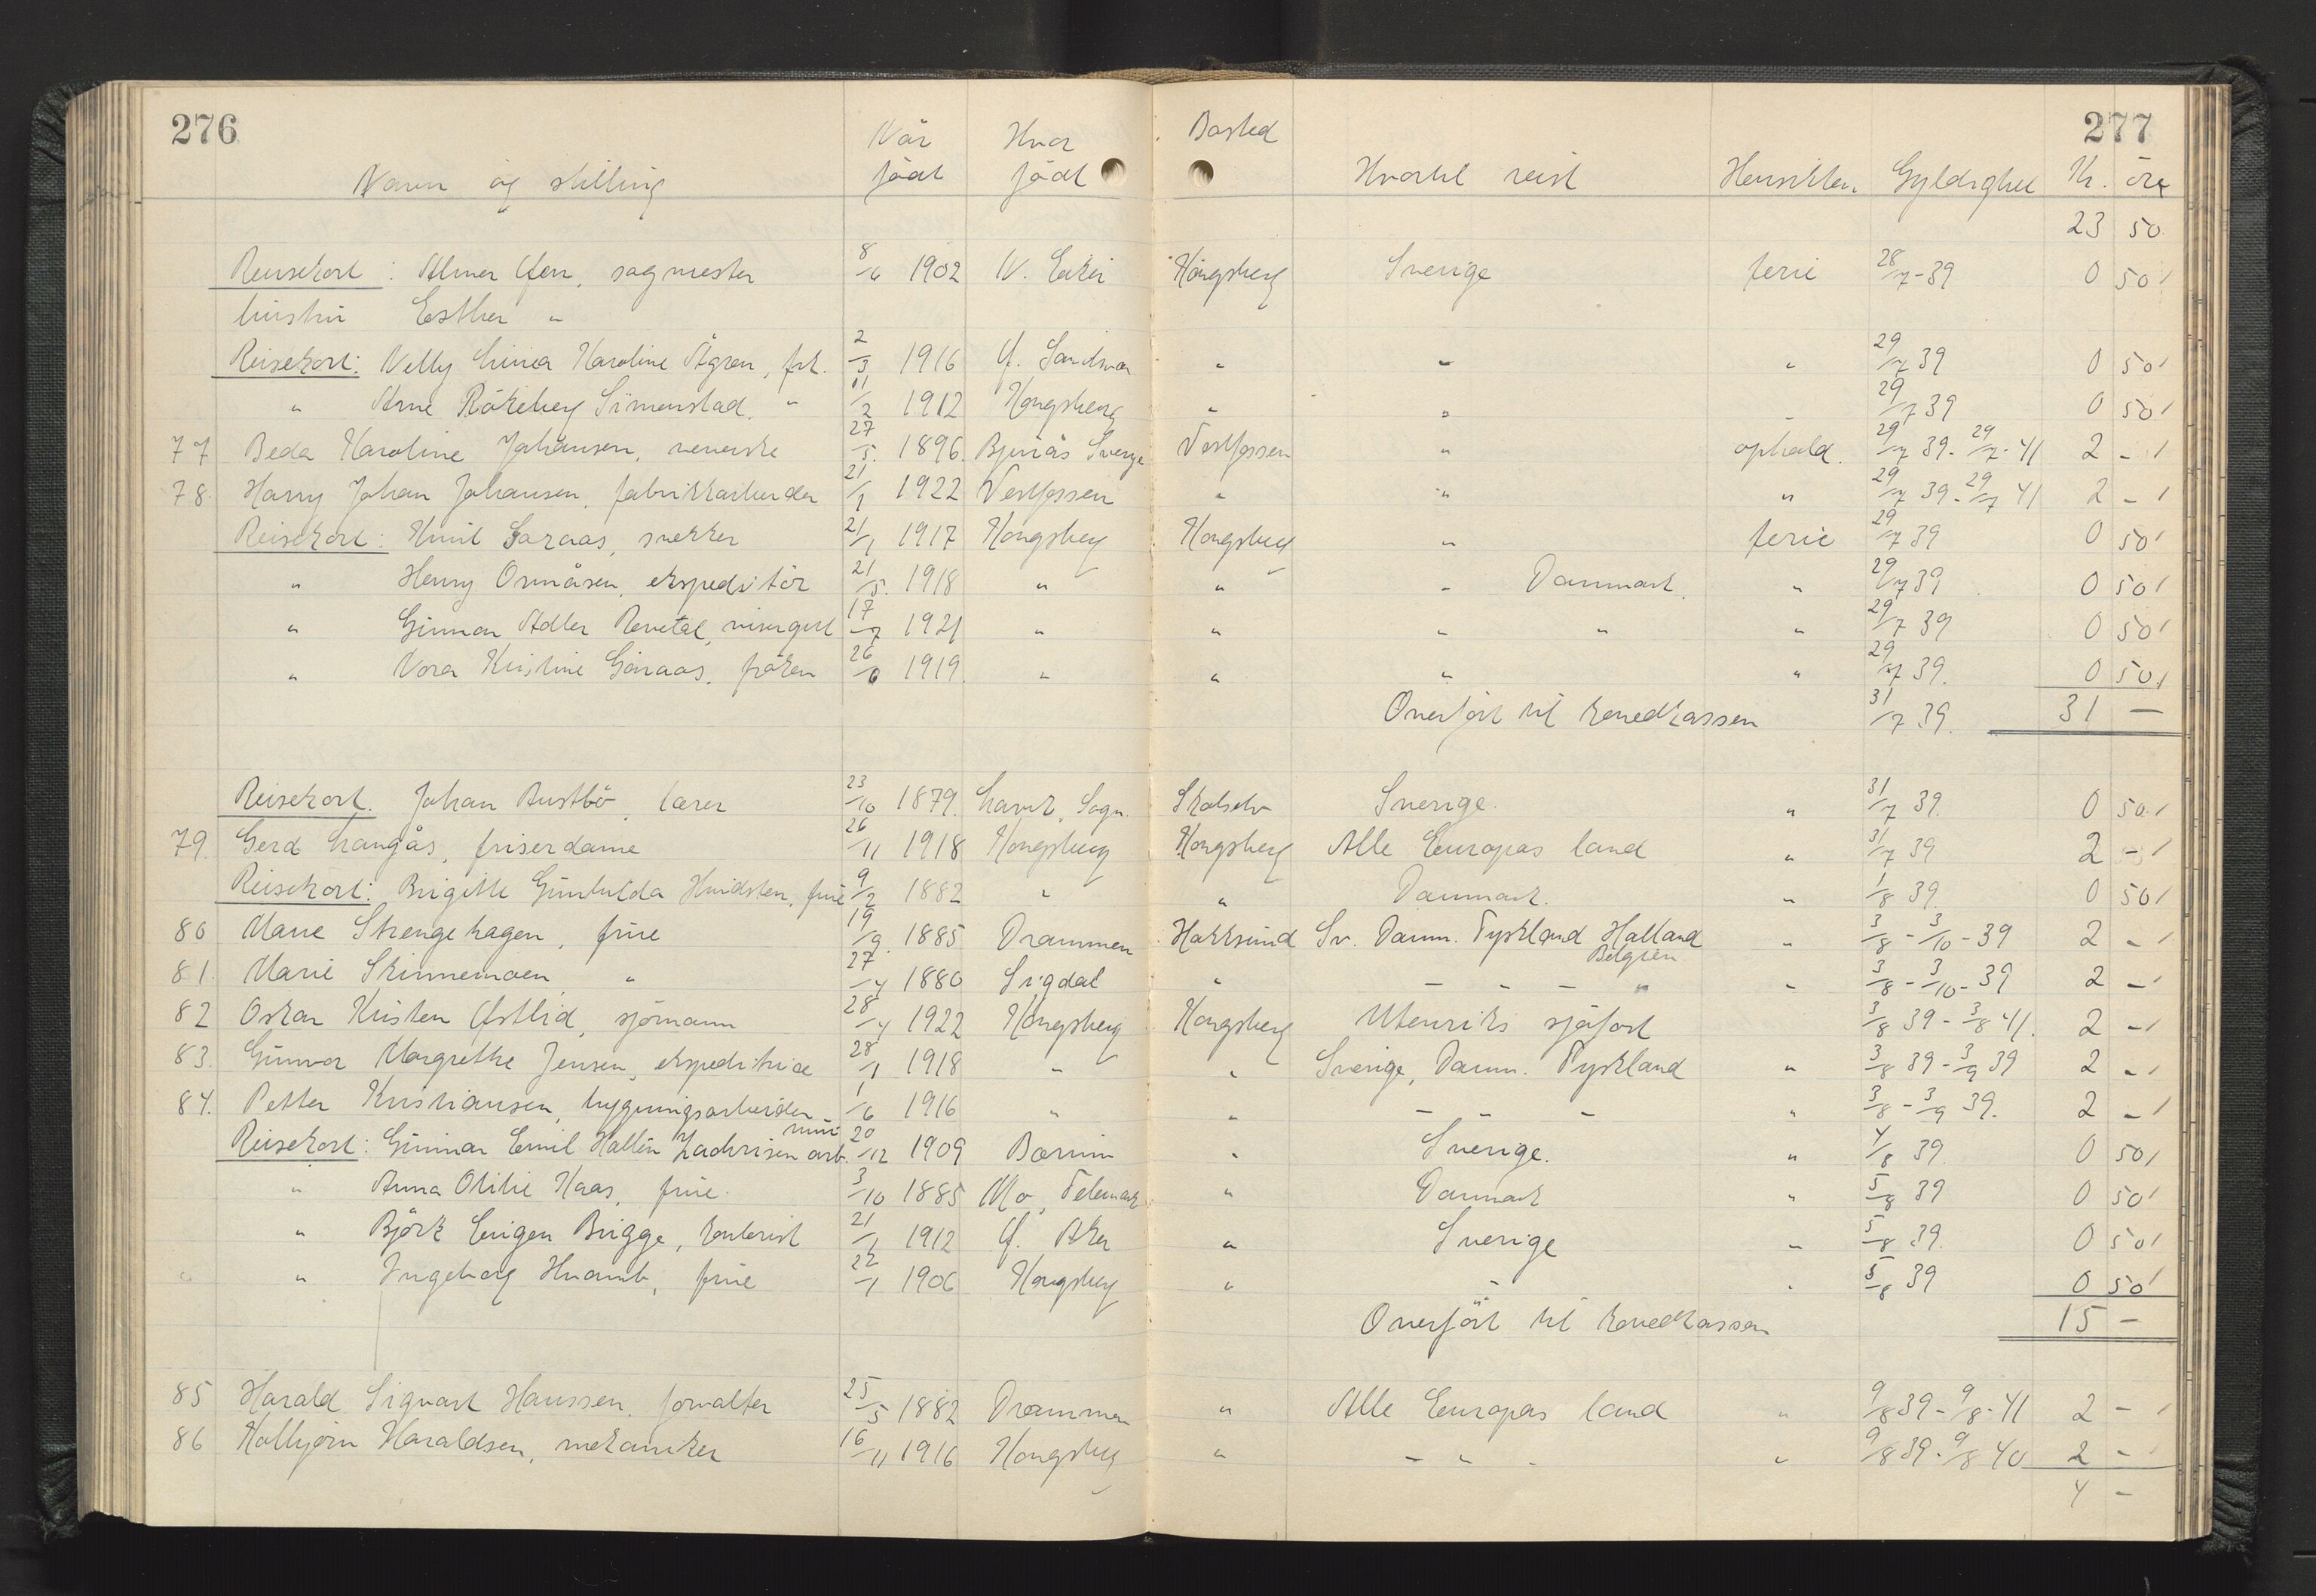 276 277
Navn og stilling Når född Hvor född Bosted Hvortil reist Hensikten Gyldighet Kr. öre
23 50
Reisekort : Almer Øen, sagmester 8/6 1902 N. Eiker Kongsberg Sverige ferie 28/7-39 0 50
hustru Esther "
Reisekort: Nelly Karoline Ågren, frk. 2/3 1916 Ø. Sandsvær " " " 29/7 39 0 50
" Arne Rökeberg Simenstad " 11/2 1912 Kongsberg " " " 29/7 39 0 50
77 Beda Karoline Johansen, svenske 27/5 1896 Sverige Vestfossen " ophold. 29/7 39 - 29/7-41 2 -
78. Harry Johan Johansen, fabrikkarbeider 21/1 1922 Vestfossen " " " 29/7 39 - 29/7 41 2 -
Reisekort: snekker 21/1 1917 Kongsberg Kongsberg " ferie 29/7 39 0 50
" Henry Ormåsen, ekspeditör 21/5 1918 " " " Danmark. " 29/7 39 0 50
" Gunnar Adler Revetal, visergutt 17/7 1921 " " " " " 29/7 39 0 50
" Nora Kristine Garaas, fröken 26/6 1919 " " " " 29/7 39. 0 50
Overfört til hovedkassen 31/7 39. 31 -
Reisekort. Johan Austbö, lærer 23/10 1879. Lavik, Sogn. Skotselv Sverige. " 31/7 39. 0 50
79. Gerd Langås, friserdame 26/11 1918 Kongsberg Kongsberg Alle Europas land " 31/7 39 2 -
Reisekort: Brigitte Gunhilda Hvidsten, frue 9/2 1882 " " Danmark. " 1/8 39. 0 50
80 Marie Strengehagen, frue 19/9. 1885 Drammen Hokksund Sv. Danm. Tyskland Holland Belgien " 3/8 - 3/10 - 39 2 -
81. Marie Skinnemoen, " 27/4 1880 Sigdal " - - - " " 3/8 - 3/10 - 39 2 -
82 Oskar Kristen Østlid, sjömann 28/4 1922 Kongsberg Kongsberg Utenriks sjöfart 3/8 39 - 3/8 41. 2 -
83. Gunvor Margrethe Jensen, ekspeditrice 28/1 1918 " " Sverige, Danm. Tyskland " 3/8 39 - 3/9 39 2 -
84. Petter Kristiansen, bygningsarbeider 1/6 1916 " " - - - " 3/8 - 3/9 39. 2 -
Reisekort: Gunnar Emil Hallén Zachrisen mur arb. 20/12 1909 Bærum " Sverige. " 4/8 39 0 50
" Anna Otilie Haas, frue. 3/10 1885 Mo, Telemark " Danmark " 5/8 39 0 50
" Björk Eugen Brigge, kontorist 21/1 1912 Ø. Aker " Sverige " 5/8 39. 0 50
" Ingeborg Hvamb, frue 22/1 1906 Kongsberg " " " 5/8 39 0 50
Overfört til hovedkassen 15 -
85 Harald Sigvart Hanssen, forvalter 25/5 1882 Drammen " Alle Europas land " 9/8 39 - 9/8 - 41 2 -
86 Kolbjørn Haraldsen, mekaniker 16/11 1916 Kongsberg " - " - " 9/8 39 - 9/8 40 2 -
4 -